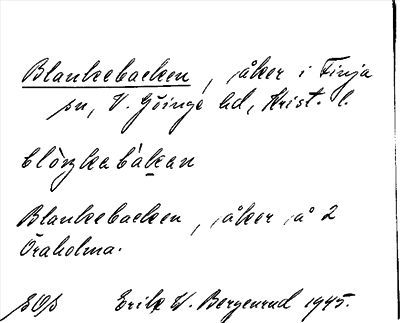 Blankebacken, åker i Finja
sn, V. Göinge hd, Krist. l.
Blankebacken, åker å 2
Öraholma.
Erik W. Bergenrud 1945.